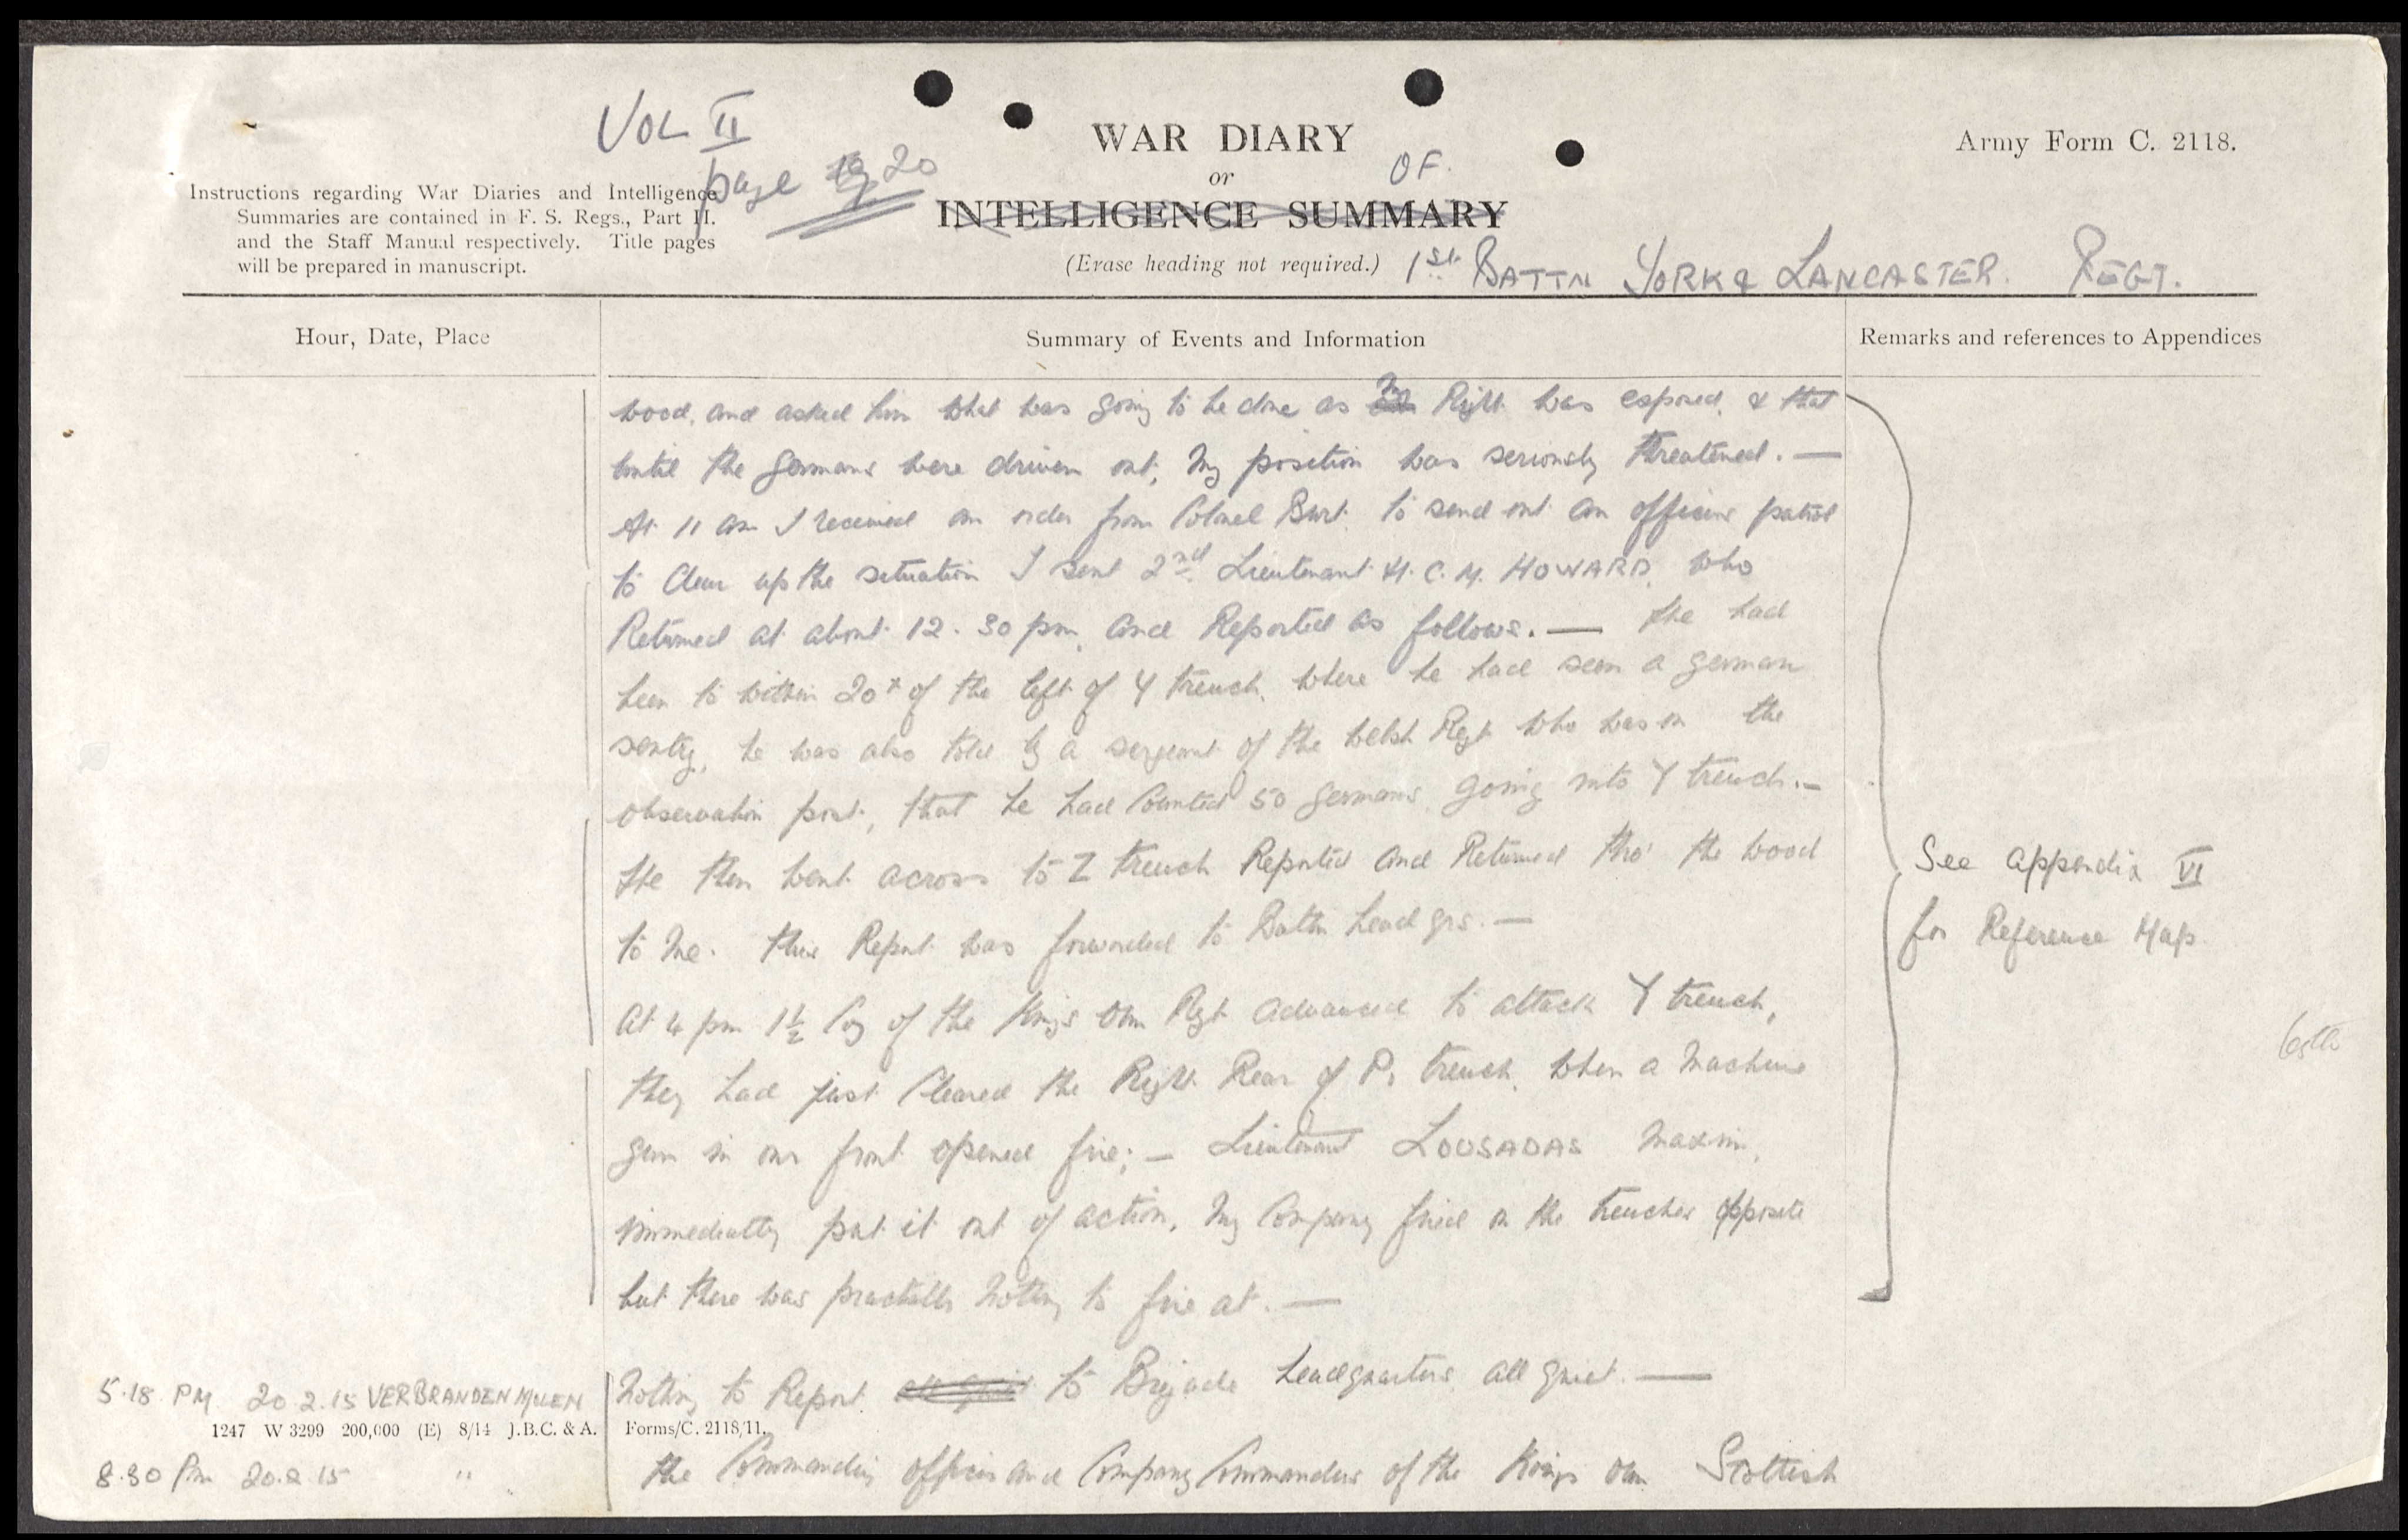 VOL II
page 20
WAR DIARY
or
OF.
INTELLIGENCE SUMMARY
(Erase heading not required.)
1st BATTN YORK & LANCASTER. REGT.
Army Form C. 2118.
Instructions regarding War Diaries and Intelligence
Summaries are contained in F. S. Regs., Part II.
and the Staff Manual respectively. Title pages
will be prepared in manuscript.
Hour, Date, Place
Summary of Events and Information
Remarks and references to Appendices
wood, and asked him what was going to be done as my Right was exposed, & that
until the Germans were driven out, my position was seriously threatened. —
At 11 am I received an order from Colonel Burt to send out an officers patrol
to clear up the situation I sent 2nd Lieutenant H. C. M. HOWARD, who
Returned at about 12.30 pm, and Reported as follows. — He had
been to within 20x of the left of Y trench, where he had seen a german
sentry, he was also told by a sergeant of the Welsh Regt who was on the
observation post, that he had counted 50 germans going into Y trench. —
He then went across to Z trench Reported and Returned thro' the wood
to me. this Report was forwarded to Battn head qrs. —
At 4 pm 1½ Coy of the Kings Own Regt advanced to attack Y trench,
they had just cleared the Right Rear of P1 trench, when a machine
gun in our front opened fire; — Lieutenant LOUSADAS maxim,
immediatly put it out of action, my Company fired on the trenches opposite
but there was practally nothing to fire at. —
See appendix VI
for Reference Map
5.18 PM 20.2.15 VERBRANDENMOLEN
Nothing to Report all quiet to Brigade headquarters all quiet. —
1247 W 3299 200,000 (E) 8/14 J.B.C. & A. Forms/C. 2118/11.
8.30 Pm 20.2.15 "
the Commanding officer and Company Commanders of the Kings own Scottish